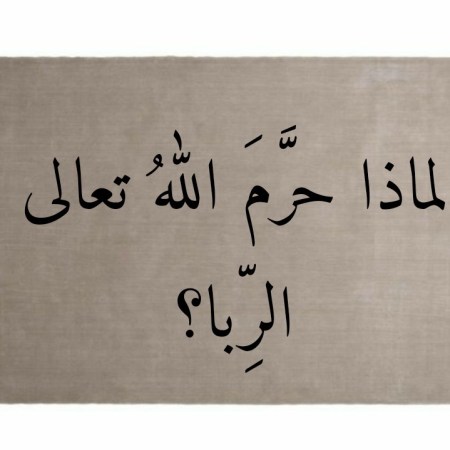 لماذا حرَّمَ اللهُ تعالى
الرِّبا؟